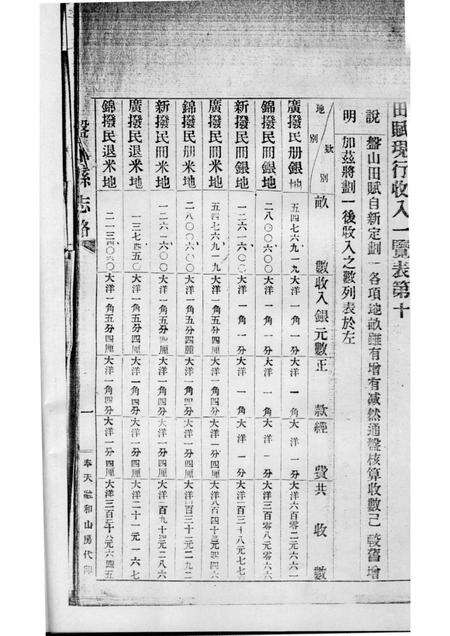 田賦現行收入一覽表第十
說 盤山田賦自新定劃一各項地畝雖有增有減然通盤核算收數已較舊增
明 加茲將劃一後收入之數列表於左
地別 款別 畝數 收入銀元數 正款 經費 共收數
廣撥民册銀地 五四七六九一九 大洋一角一分 大洋一角 大洋一分 大洋六百零二元六六一
錦撥民冊銀地 二八〇〇六〇〇 大洋一角一分 大洋一角 大洋一分 大洋三百零八元〇六六
新撥民冊銀地 一二六一六〇〇 大洋一角一分 大洋一角 大洋一分 大洋一百三十八元七七
廣撥民冊米地 五四七六九一九 大洋一角五分四厘 大洋一角四分 大洋一分四厘 大洋八百四十三元四四
錦撥民冊米地 二八〇〇六〇〇 大洋一角五分四厘 大洋一角四分 大洋一分四厘 大洋四百三十一元二九二
新撥民冊米地 一二六一六〇〇 大洋一角五分四厘 大洋一角四分 大洋一分四厘 大洋一百九十四元二八六
廣撥民退米地 一三七四五〇 大洋一角五分四厘 大洋一角四分 大洋一分四厘 大洋二十一元一六七
錦撥民退米地 二一三〇六〇〇 大洋一角五分四厘 大洋一角四分 大洋一分四厘 大洋三百二十八元六四五
盤山縣志略
一
奉天融和山房代印